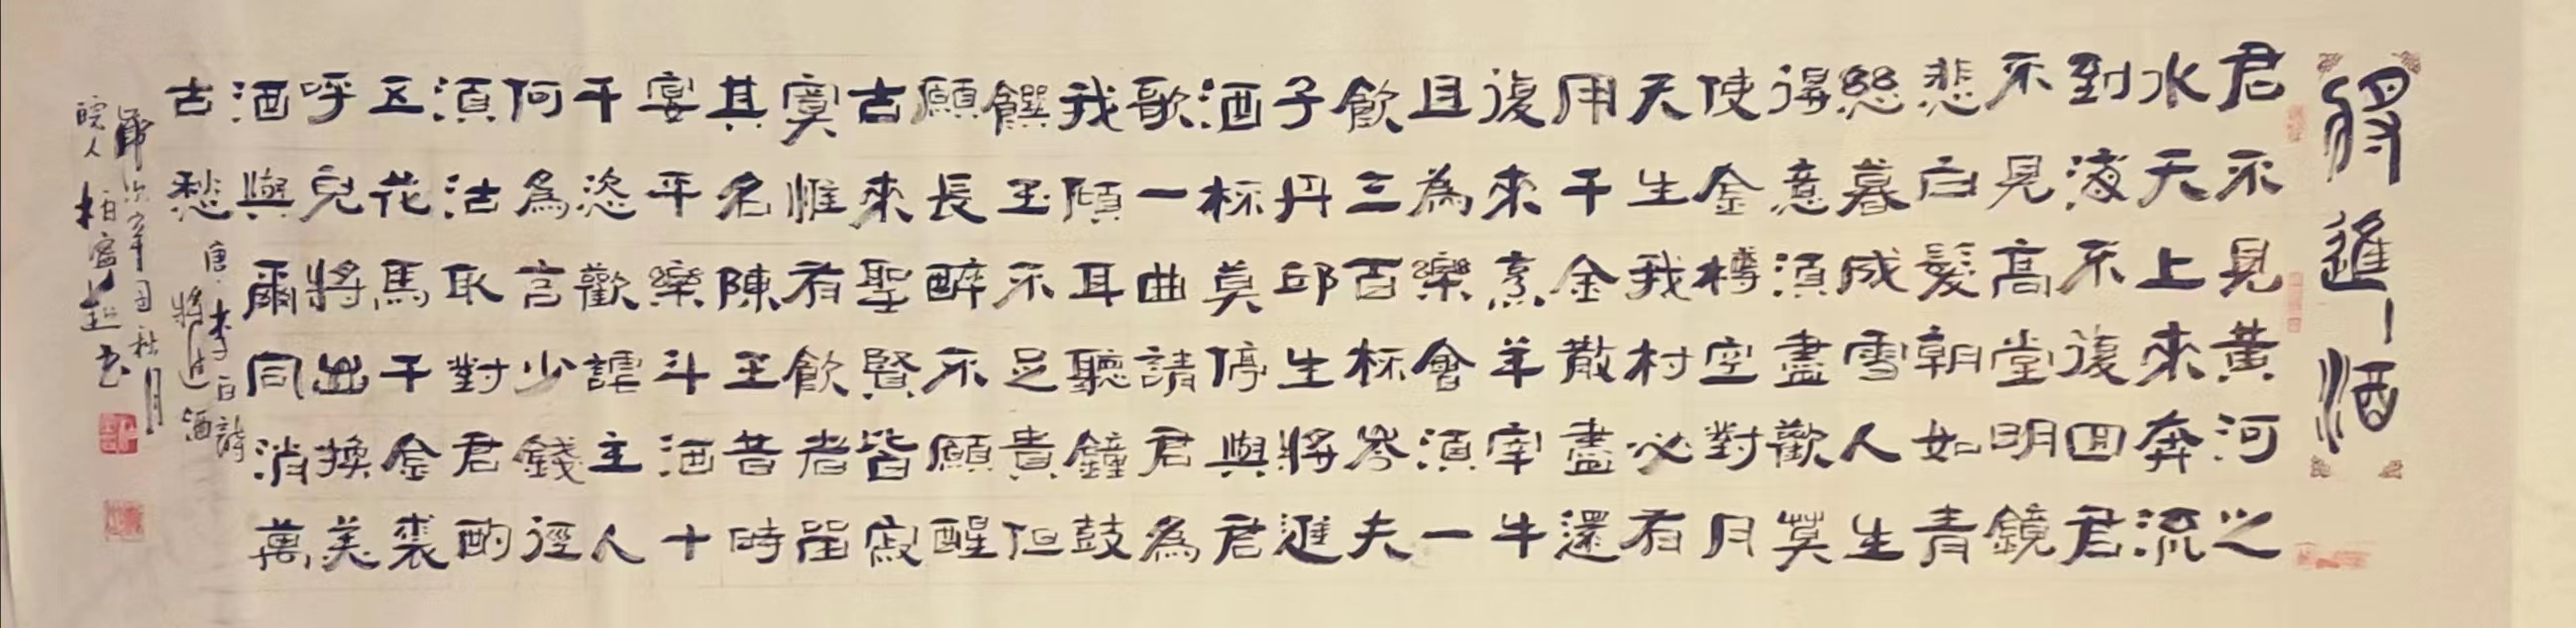 將進酒
君不見黃河之
水天上來奔流
到海不復回君
不見高堂明鏡
悲白髮朝如青
絲暮成雪人生
得意須盡歡莫
使金樽空對月
天生我村必有
用千金散盡還
復來烹羊宰牛
且為樂會須一
飲三百杯岑夫
子丹邱生將進
酒杯莫停與君
歌一曲請君為
我傾耳聽鐘鼓
饌玉不足貴但
願長醉不願醒
古來聖賢皆寂
寞惟有飲者留
其名陳王昔時
宴平樂斗酒十
千恣歡謔主人
何為言少錢徑
須沽取對君酌
五花馬千金裘
呼兒將出換美
酒與爾同消萬
古愁
唐李白詩
將進酒
歲次辛秋月
皖人柏超书